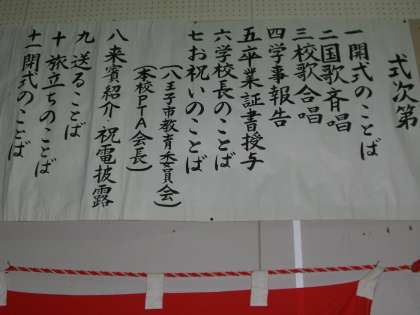 式次第
一開式のことば
二国歌斉唱
三校歌合唱
四学事報告
五卒業証書授与
六学校長のことば
七お祝いのことば
(八王子市教育委員会)
(本校PTA会長)
八来賓紹介 祝電披露
九送ることば
十旅立ちのことば
十一開式のことば